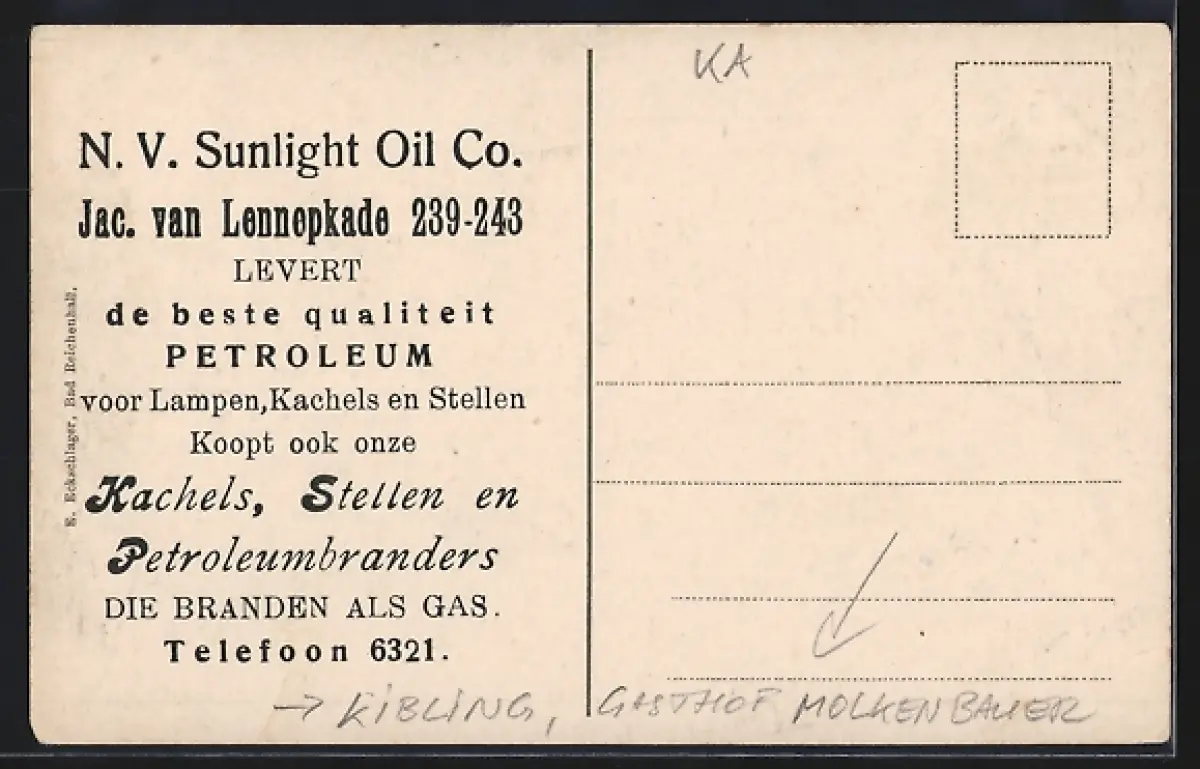 N. V. Sunlight Oil Co.
Jac. van Lennepkade 239-243
LEVERT
de beste qualiteit
PETROLEUM
voor Lampen, Kachels en Stellen
Koopt ook onze
Kachels, Stellen en
Petroleumbranders
DIE BRANDEN ALS GAS.
Telefoon 6321.
E. Eckschlager, Bad Reichenhall.
KA
→ KIBLING, GASTHOF MOLKENBAUER